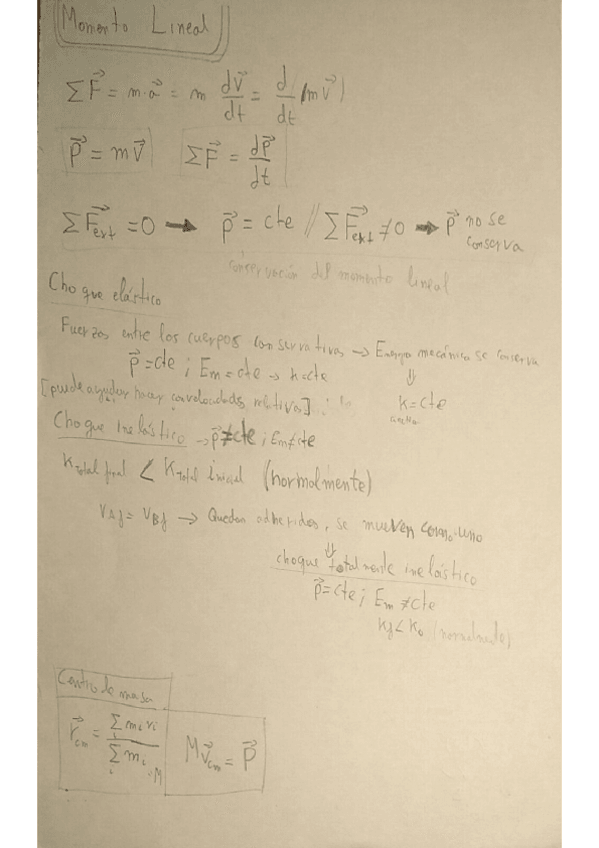 Momento Lineal
ΣF⃗ = m·a⃗ = m dv⃗/dt = d/dt (mv⃗)
p⃗ = mv⃗ ΣF⃗ = dp⃗/dt
ΣF⃗ext = 0 → p⃗ = cte // ΣF⃗ext ≠ 0 → p⃗ no se conserva
conservación del momento lineal
Choque elástico
Fuerzas entre los cuerpos conservativas → Energía mecánica se conserva
⇓
p⃗ = cte ; Em = cte → k = cte
k = cte
[puede ayudar hacer con velocidades relativas]
Choque inelástico → p⃗ ≠ cte ; Em ≠ cte
KTotal final < KTotal inicial (normalmente)
VAf = VBf → Quedan adheridos, se mueven como uno
⇓
choque totalmente inelástico
p⃗ = cte ; Em ≠ cte
Kf < K₀ (normalmente)
Centro de masa
r⃗cm = Σi mi ri / Σi mi = M
M v⃗cm = p⃗